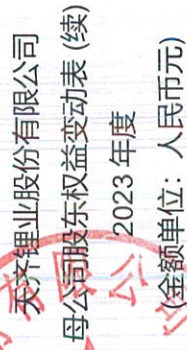 天齐锂业股份有限公司
母公司股东权益变动表 (续)
2023 年度
(金额单位：人民币元)